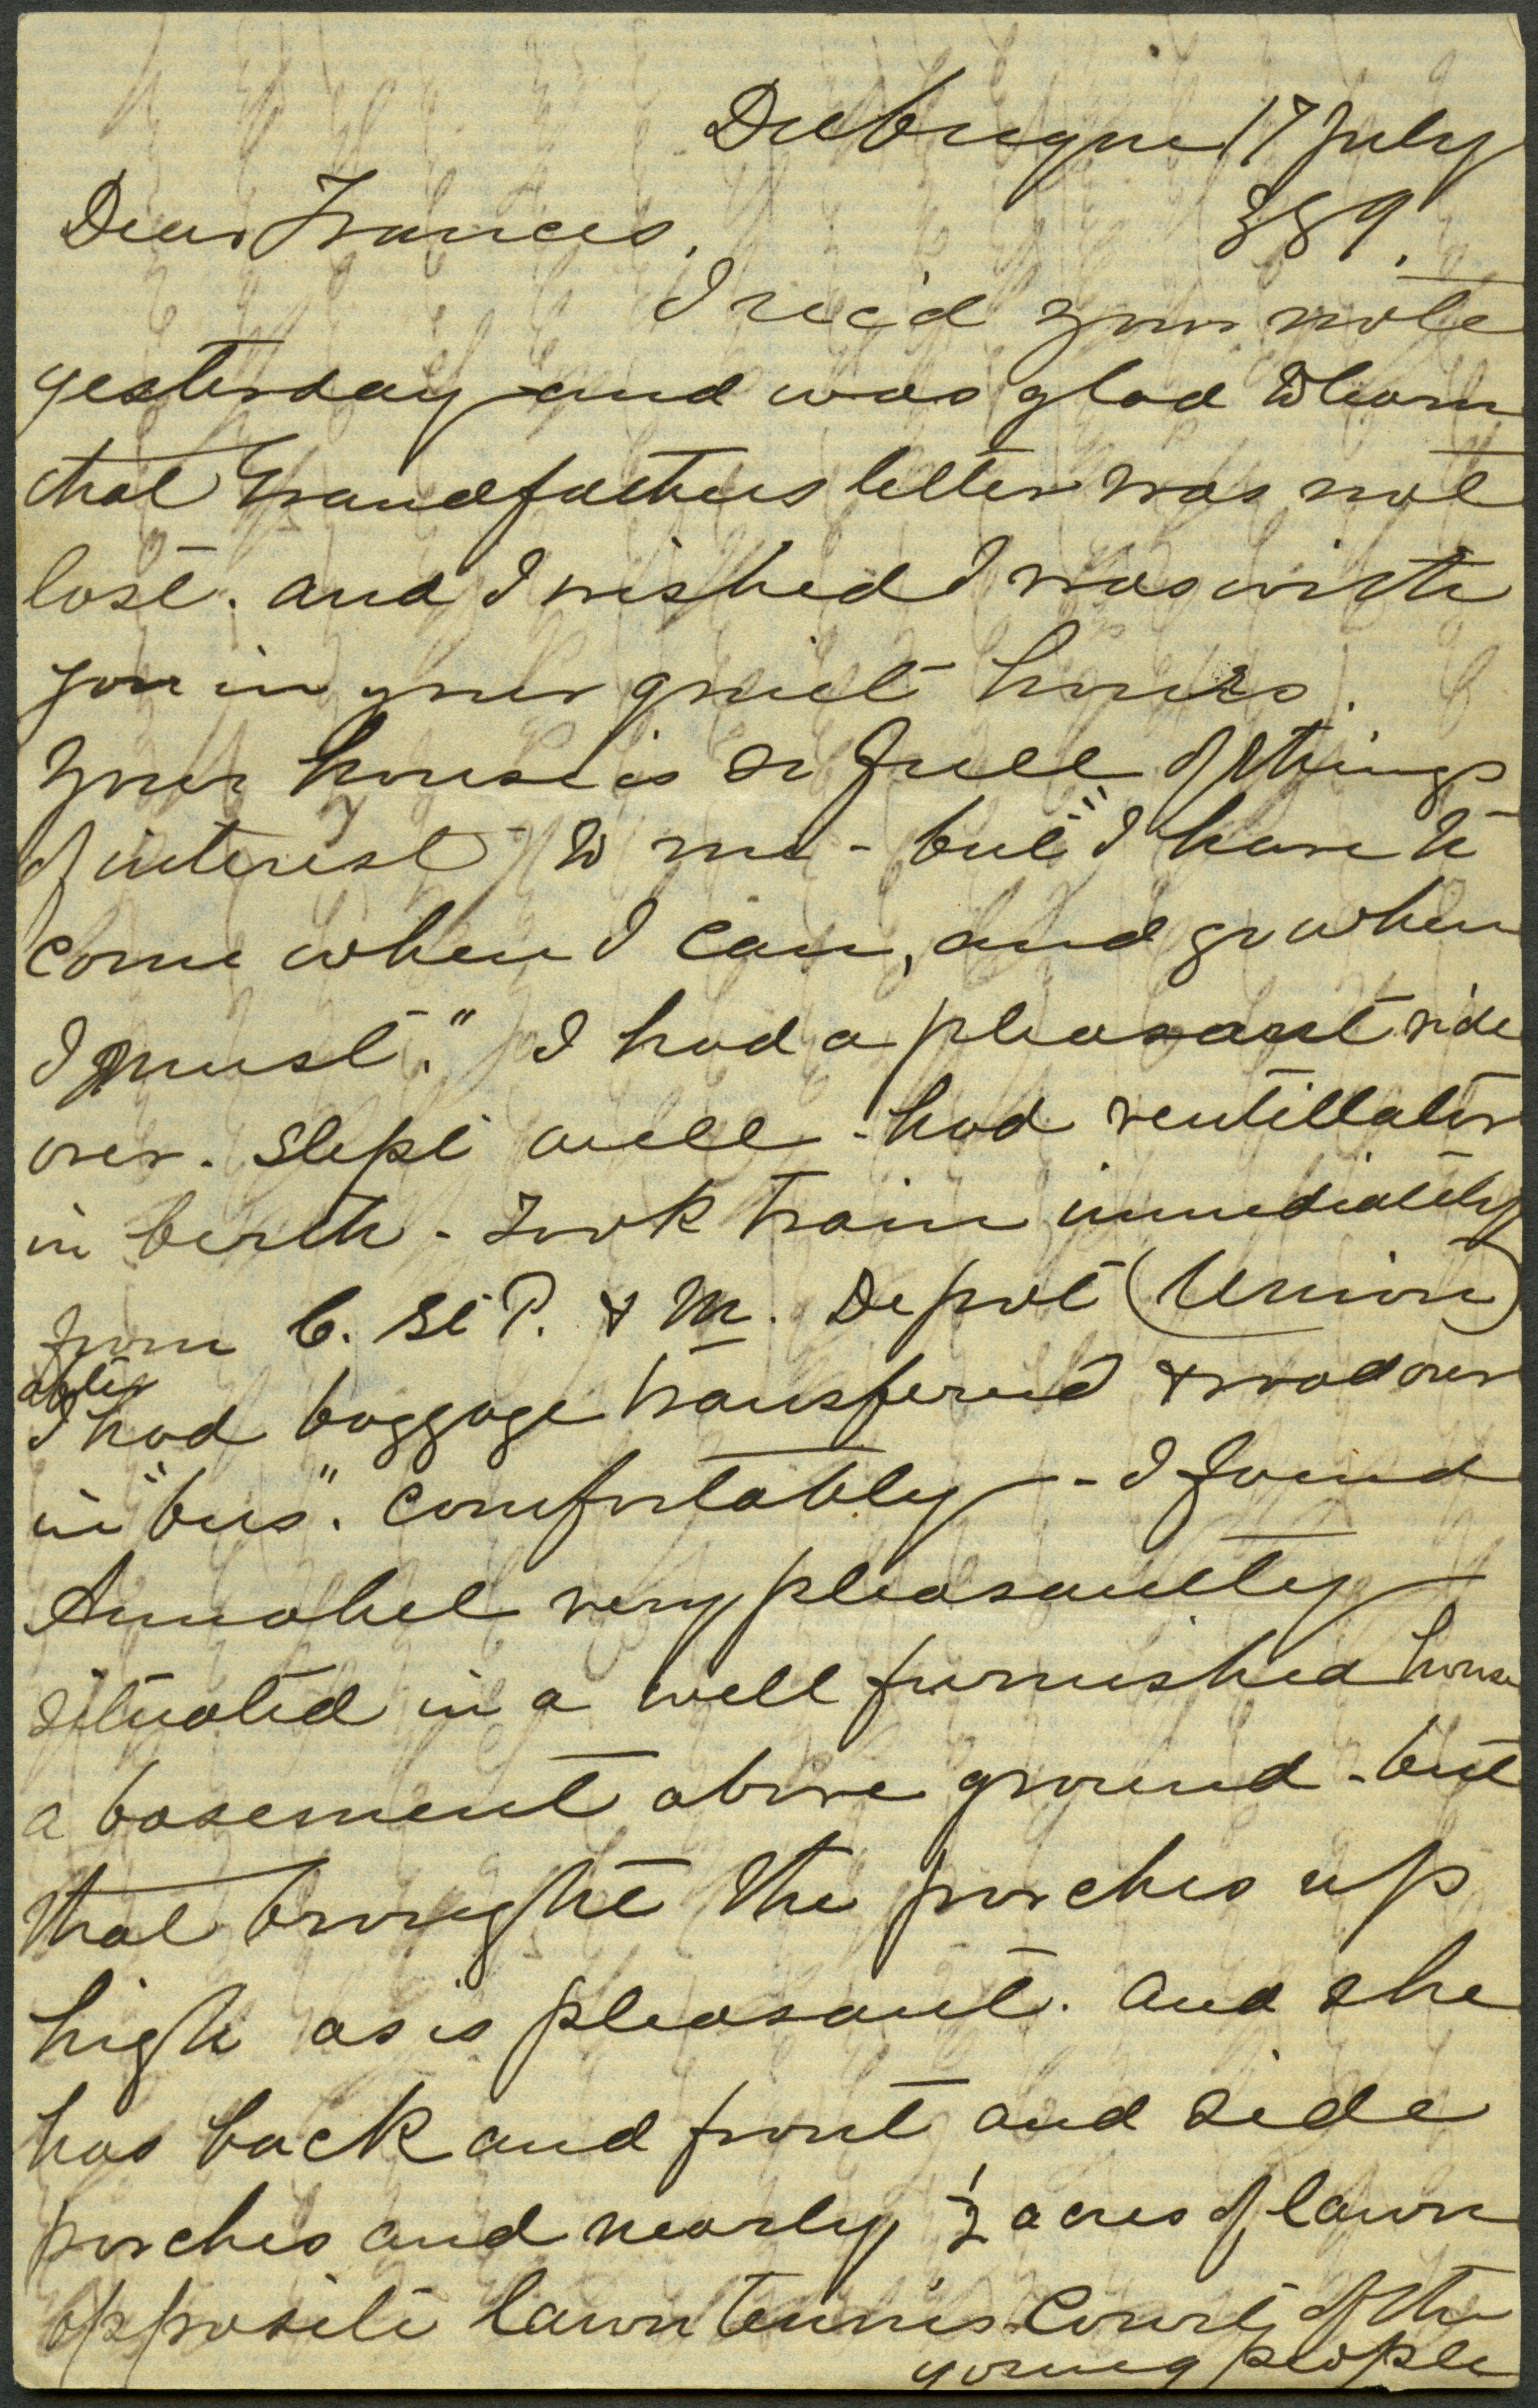 Dubuque 17 July
Dear Frances. 889.
I rec'd your note
yesterday and was glad to learn
that Grandfathers letter was not
lost. and I wished I was with
you in your quiet hours.
Your house is so full of things
of interest to me - but "I have to
come when I can, and go when
I must." I had a pleasant ride
over. slept well - had ventillator
in berth - took train immediately
from C. St P. & M. Depot (Union)
after
I had baggage transfered & rode over
in "bus". comfortably - I found
Annabel very pleasantly
situated in a well furnished house
a basement above ground - but
that brought the porches up
high as is pleasant. and she
has back and front and side
porches and nearly ½ acres of lawn
opposite lawn tennis Court of the
young people